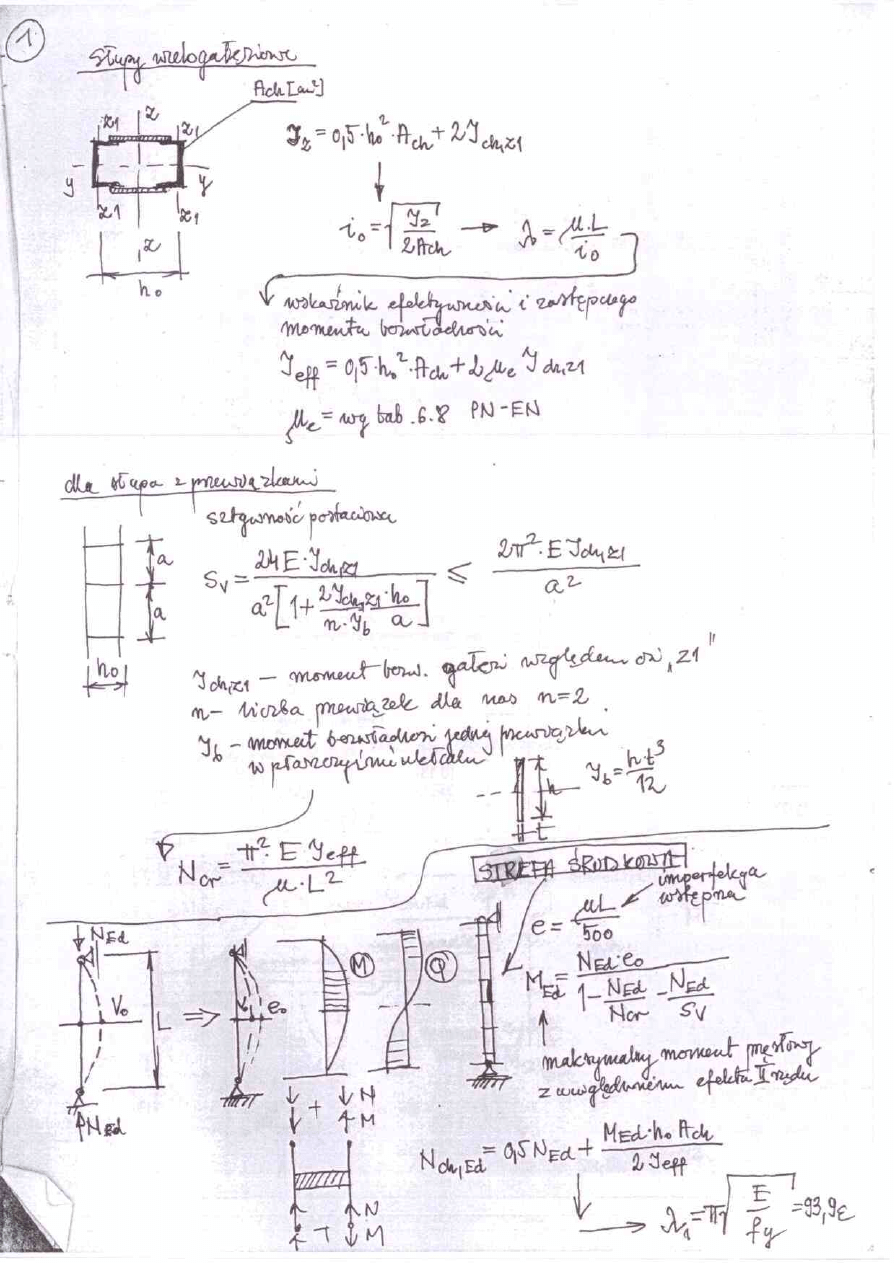 1
Słupy wielogałęziowe
Ach [cm²]
z1 z z1
y y
z1 z z1
h₀
J_z = 0,5·h₀²·Ach + 2J_ch,z1
i₀ = √(J_z / 2Ach) → λ = μ·L / i₀
wskaźnik efektywności i zastępczego
momentu bezwładności
J_eff = 0,5·h₀²·Ach + 2μ_e J_ch,z1
μ_e = wg tab. 6.8 PN-EN
dla słupa z przewiązkami
sztywność postaciowa
a
a
h₀
S_V = 24E·J_ch,z1 / a²[1 + 2J_ch,z1/(n·J_b) · h₀/a] ≤ 2π²·E J_ch,z1 / a²
J_ch,z1 – moment bezw. gałęzi względem osi „z1"
n – liczba przewiązek dla nas n=2.
J_b – moment bezwładności jednej przewiązki
w płaszczyźnie układu
h
t
J_b = h·t³ / 12
N_cr = π²·E J_eff / μ·L²
STREFA ŚRODKOWA
imperfekcja
wstępna
e = μL / 500
M_Ed = N_Ed·e₀ / (1 - N_Ed/N_cr - N_Ed/S_V)
N_Ed
V₀
L
⇒
e₀
M
Q
N_Ed
maksymalny moment przęsłowy
z uwzględnieniem efektu II rzędu
+ N
M
N
T M
N_ch,Ed = 0,5 N_Ed + M_Ed·h₀ Ach / 2 J_eff
λ₁ = π√(E / fy) = 93,9ε